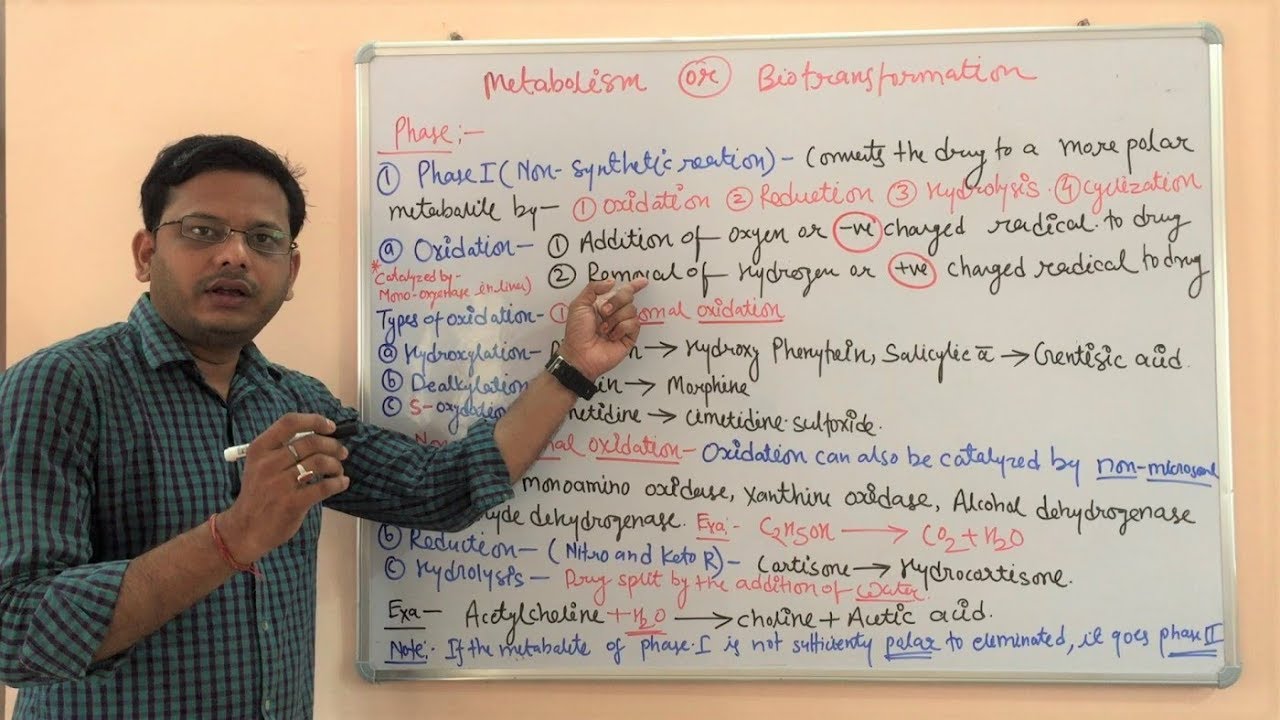 Metabolism or Biotransformation
Phase:-
① Phase I (Non-Synthetic reation) - Converts the drug to a more polar
metabalite by- ① oxidation ② Reduction ③ Hydrolysis. ④ cyclization
ⓐ Oxidation- ① Addition of oxyen or -ve charged radical to drug
*Catalyzed by-
Mono-oxyenase in liver)
② Removal of Hydrogen or +ve charged radical to drug
Types of oxidation- ① mal oxidation
ⓐ Hydroxylation- → Hydroxy Phenytein, Salicylic a̅ → Gentisic acid.
ⓑ Dealkylation → Morphine
ⓒ S-oxydation metidine → Cimetidine sulfoxide.
Non al oxidation- Oxidation can also be catalyzed by non-microsomal
monoamino oxidase, Xanthine oxidase, Alcohal dehydrogenase
yde dehydrogenase. Exa:- C2H5OH → CO2+H2O
ⓑ Reduction- (Nitro and Keto R)- Cartisone → Hydrocartisone.
ⓒ Hydrolysis- Drug split by the addition of water.
Exa- Acetylcholine + H2O → choline + Acetic acid.
Note:- If the metabalite of phase-I is not sufficienty polar to eleminated, it goes phase II